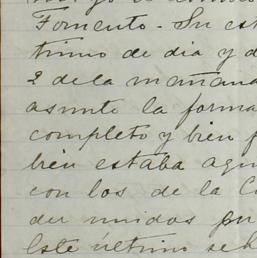 Fomento. Su est
timo de dia y d
2 de la mañana
asunto la forma
completo y bien f
bien estaba aqu
con los de la C
der unidos en
Este último se h